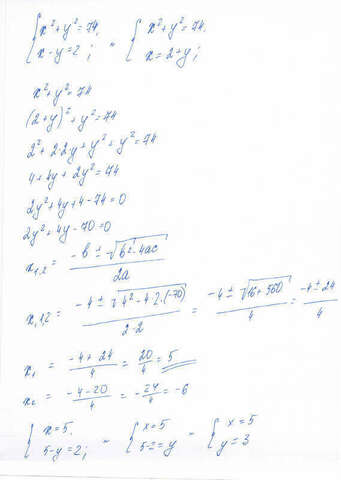 { x²+y²=74. = { x²+y²=74.
{ x-y=2; { x=2+y;
x²+y²=74
(2+y)²+y²=74
2²+2·2y+y²+y²=74
4+4y+2y²=74
2y²+4y+4-74=0
2y²+4y-70=0
x₁,₂ = (-b ± √(b²-4ac)) / 2a
x₁,₂ = (-4 ± √(4²-4·2·(-70))) / 2·2 = (-4 ± √(16+560)) / 4 = (-4 ± 24) / 4
x₁ = (-4+24) / 4 = 20/4 = 5
x₂ = (-4-20) / 4 = -24/4 = -6
{ x=5. = { x=5 - { x=5
{ 5-y=2; { 5-2=y { y=3